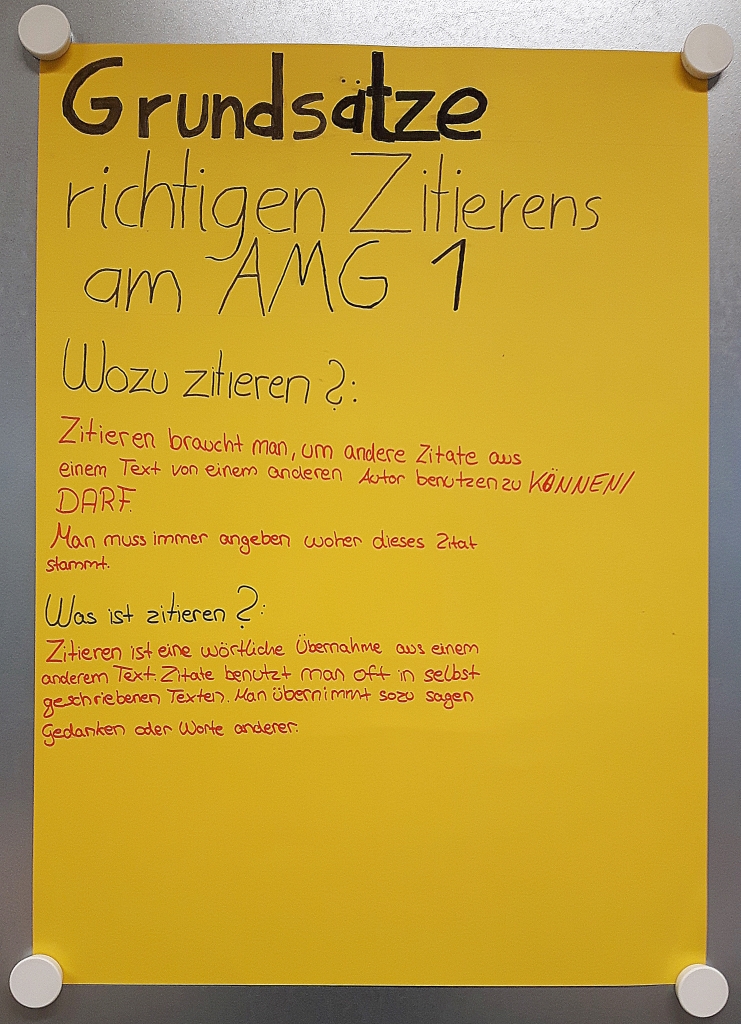 Grundsätze
richtigen Zitierens
am AMG 1
Wozu zitieren ?:
Zitieren braucht man, um andere Zitate aus
einem Text von einem anderen Autor benutzen zu KÖNNEN/
DARF.
Man muss immer angeben woher dieses Zitat
stammt.
Was ist zitieren ?:
Zitieren ist eine wörtliche Übernahme aus einem
anderem Text. Zitate benutzt man oft in selbst
geschriebenen Texten. Man übernimmt sozu sagen
Gedanken oder Worte anderer.